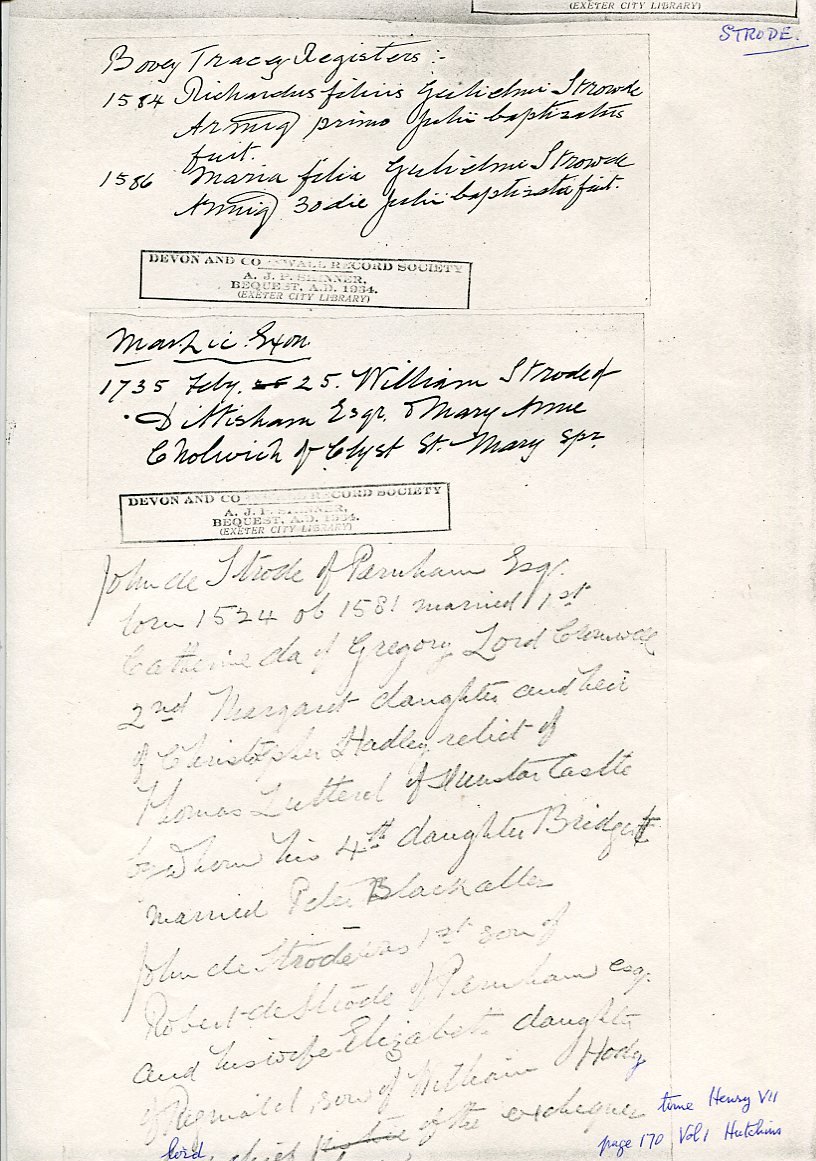 (EXETER CITY LIBRARY)
STRODE.
Bovey Tracey Registers :-
1584 Richardus filius Gulielmi Strowde
Armig primo Julii baptizatus
fuit.
1586 Maria filia Gulielmi Strowde
Armig 30 die Julii baptizata fuit.
DEVON AND CORNWALL RECORD SOCIETY
A. J. P. SKINNER,
BEQUEST, A.D. 1934.
(EXETER CITY LIBRARY)
Mar Lic Exon
1735 Feby. 25. William Strode of
Dittisham Esqr. & Mary Anne
Cholwich of Clyst St. Mary Spr
DEVON AND CORNWALL RECORD SOCIETY
A. J. P. SKINNER,
BEQUEST, A.D. 1934.
(EXETER CITY LIBRARY)
John de Strode of Parnham Esqr.
born 1524 ob 1581 married 1st
Catherine da of Gregory Lord Cromwell
2nd Margaret daughter and heir
of Christopher Hadley relict of
Thomas Lutterel of Dunstar Castle
by whom his 4th daughter Bridgett
married Peter Blackaller
John de Strode was 1st son of
Robert de Strode of Parnham esq.
and his wife Elizabeth daughter
of Reginald son of William Hody
lord chief Justice of the exchequer
time Henry VII
page 170 Vol 1 Hutchins